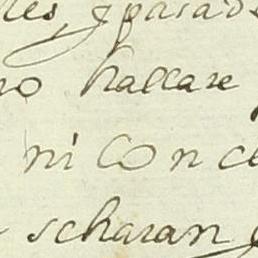 les, y parade
no hallare
ni con ce
scharan